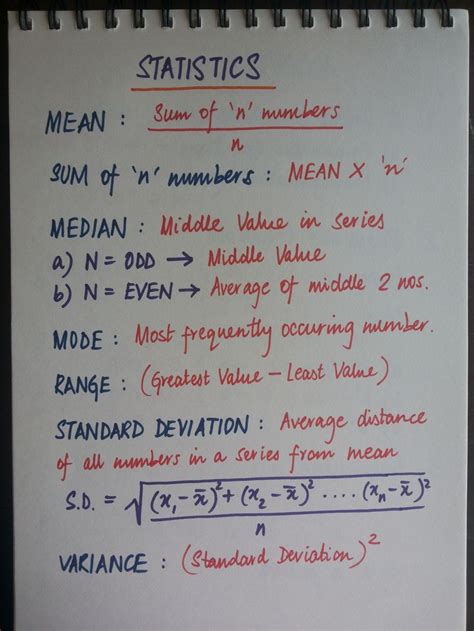 STATISTICS
MEAN : Sum of 'n' numbers / n
SUM of 'n' numbers : MEAN X 'n'
MEDIAN : Middle Value in series
a) N = ODD → Middle Value
b) N = EVEN → Average of middle 2 nos.
MODE : Most frequently occuring number.
RANGE : (Greatest Value – Least Value)
STANDARD DEVIATION : Average distance
of all numbers in a series from mean
S.D. = √((x₁ - x̄)² + (x₂ - x̄)² .... (xₙ - x̄)² / n)
VARIANCE : (Standard Deviation)²